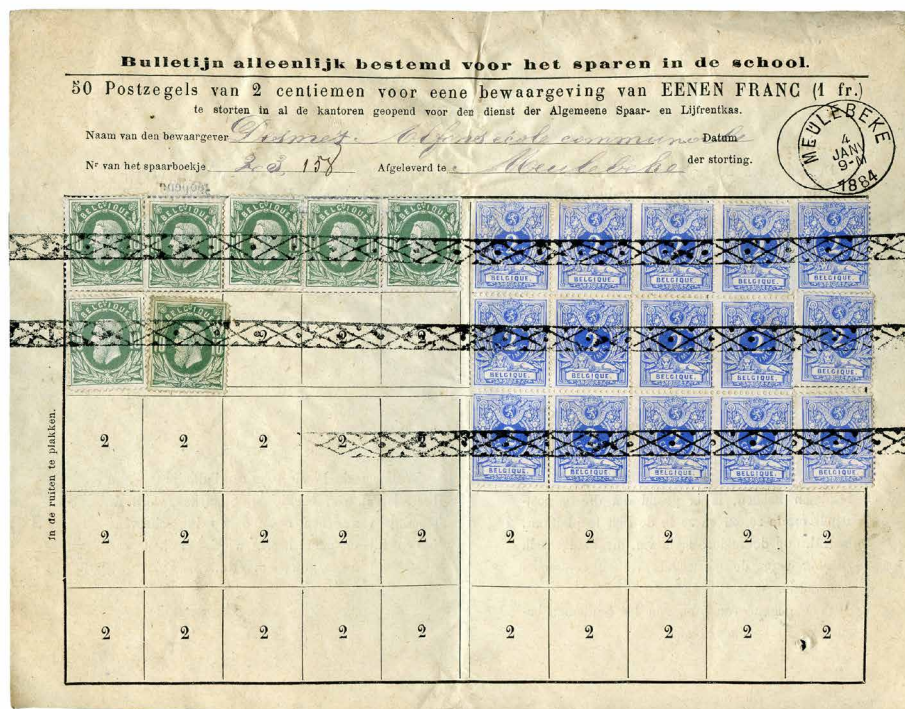 Bulletijn alleenlijk bestemd voor het sparen in de school.
50 Postzegels van 2 centiemen voor eene bewaargeving van EENEN FRANC (1 fr.)
te storten in al de kantoren geopend voor den dienst der Algemeene Spaar- en Lijfrentkas.
Naam van den bewaargever école communale Datum
Nr van het spaarboekje 158 Afgeleverd te Meulebeke der storting.
MEULEBEKE
4
JANV
9-M
1884
BELGIQUE BELGIQUE BELGIQUE BELGIQUE BELGIQUE
2 2 2 2 2
BELGIQUE BELGIQUE BELGIQUE BELGIQUE BELGIQUE
BELGIQUE BELGIQUE
2 2 2
2 2 2 2 2
BELGIQUE BELGIQUE BELGIQUE BELGIQUE BELGIQUE
In de ruiten te plakken.
2 2 2 2 2
2 2 2 2 2
BELGIQUE BELGIQUE BELGIQUE BELGIQUE BELGIQUE
2 2 2 2 2 2 2 2 2 2
2 2 2 2 2 2 2 2 2 2